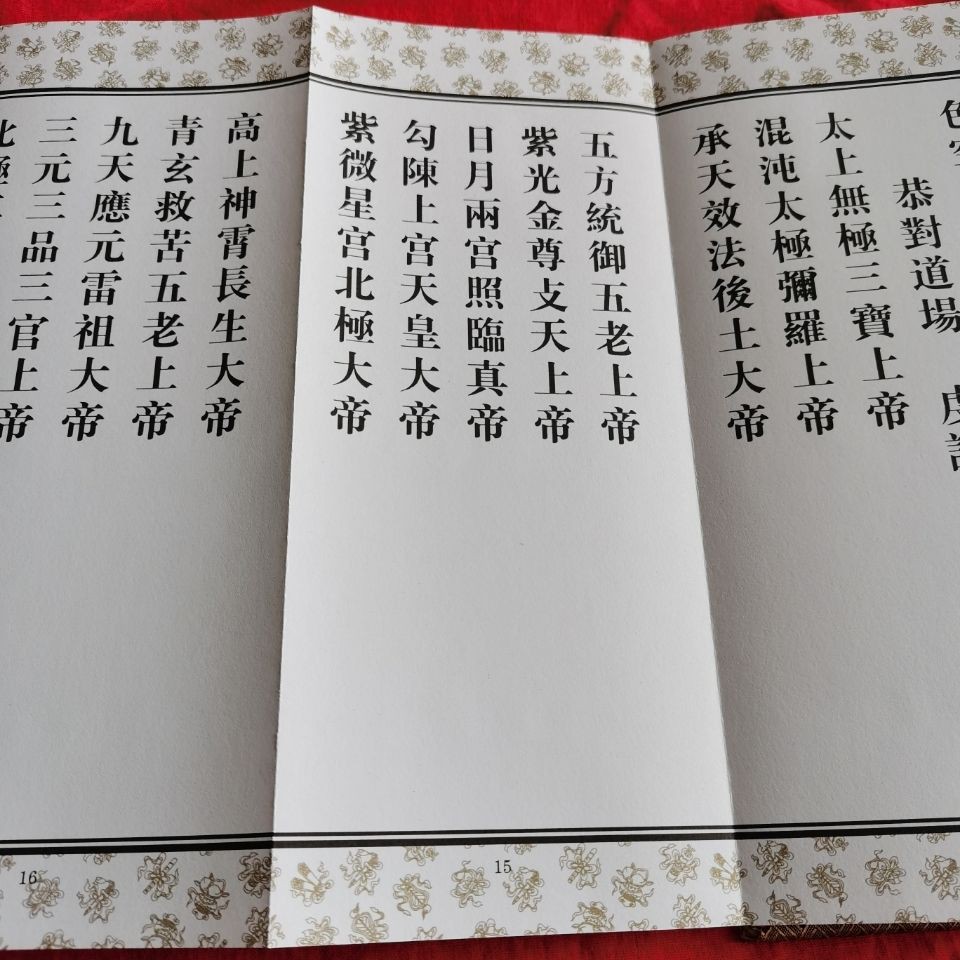 恭對道場
太上無極三寶上帝
混沌太極彌羅上帝
承天效法後土大帝
五方統御五老上帝
紫光金尊攴天上帝
日月兩宫照臨真帝
勾陳上宫天皇大帝
紫微星宫北極大帝
高上神霄長生大帝
青玄救苦五老上帝
九天應元雷祖大帝
三元三品三官上帝
15
16